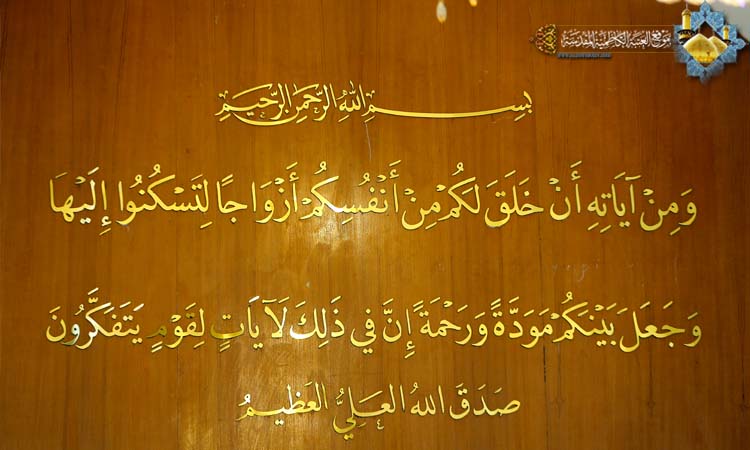 موقع العتبة الكاظمية المقدسة
بِسْمِ اللهِ الرَّحْمنِ الرَّحِيمِ
وَمِنْ آيَاتِهِ أَنْ خَلَقَ لَكُمْ مِنْ أَنْفُسِكُمْ أَزْوَاجًا لِتَسْكُنُوا إِلَيْهَا
وَجَعَلَ بَيْنَكُمْ مَوَدَّةً وَرَحْمَةً إِنَّ فِي ذَلِكَ لَآيَاتٍ لِقَوْمٍ يَتَفَكَّرُونَ
صَدَقَ اللهُ العَلِيُّ العَظِيمُ